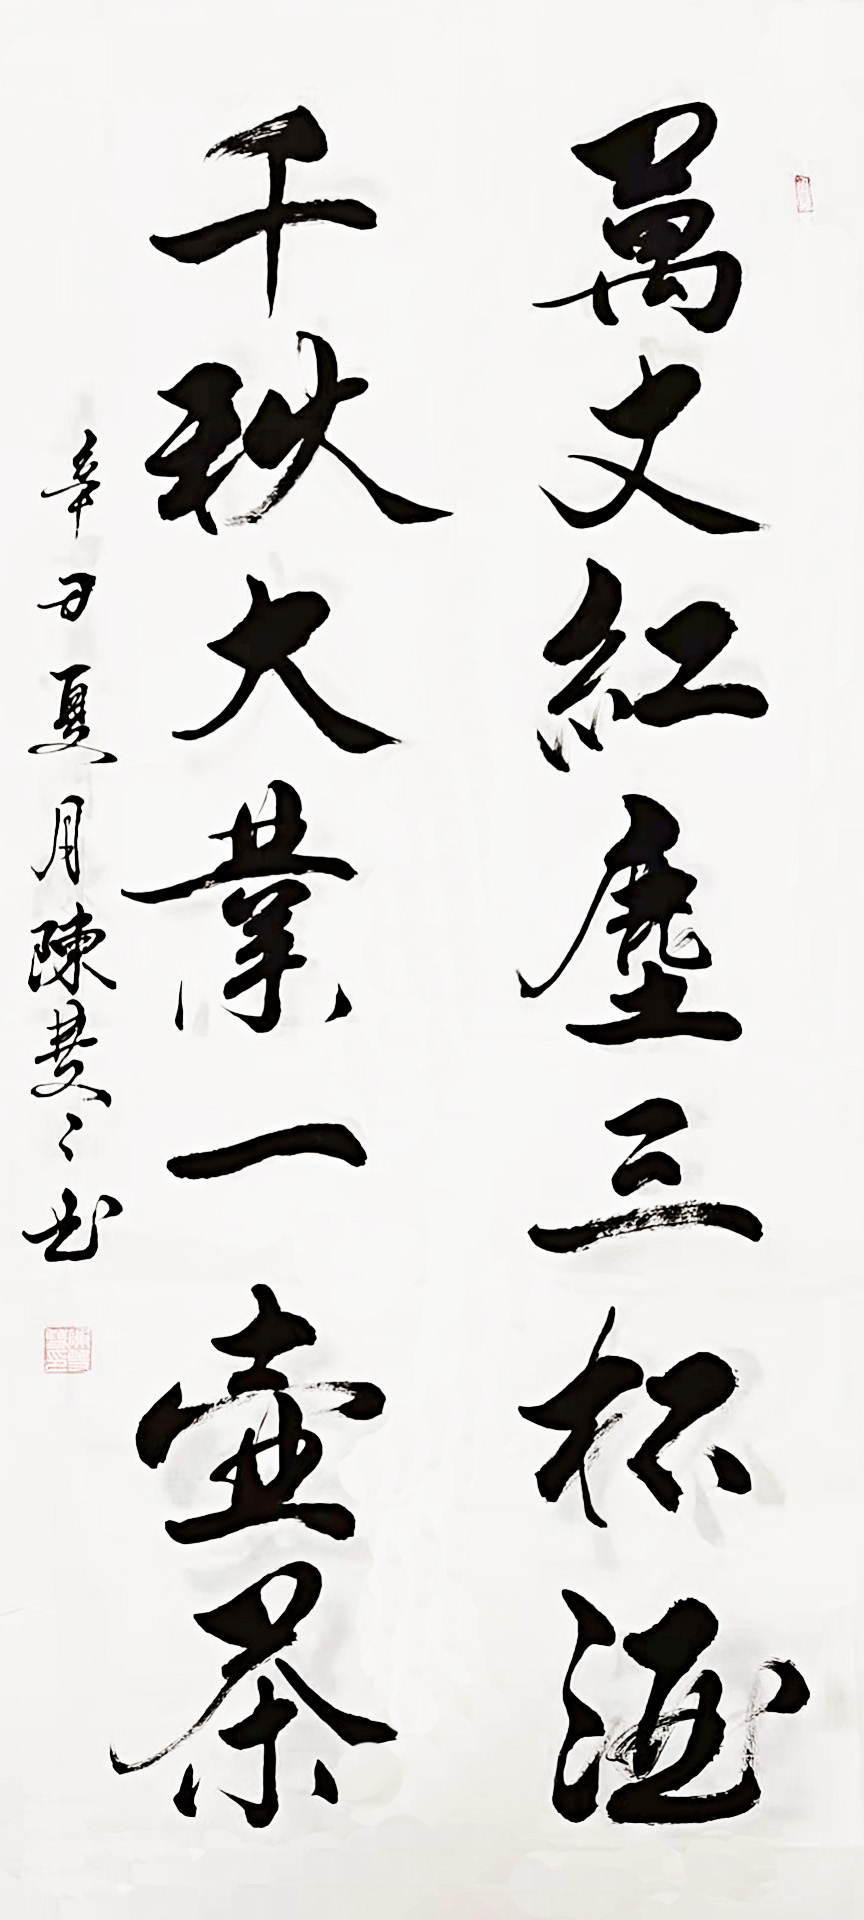 萬丈紅塵三杯酒
千秋大業一壺茶
辛丑夏月陳雙々书